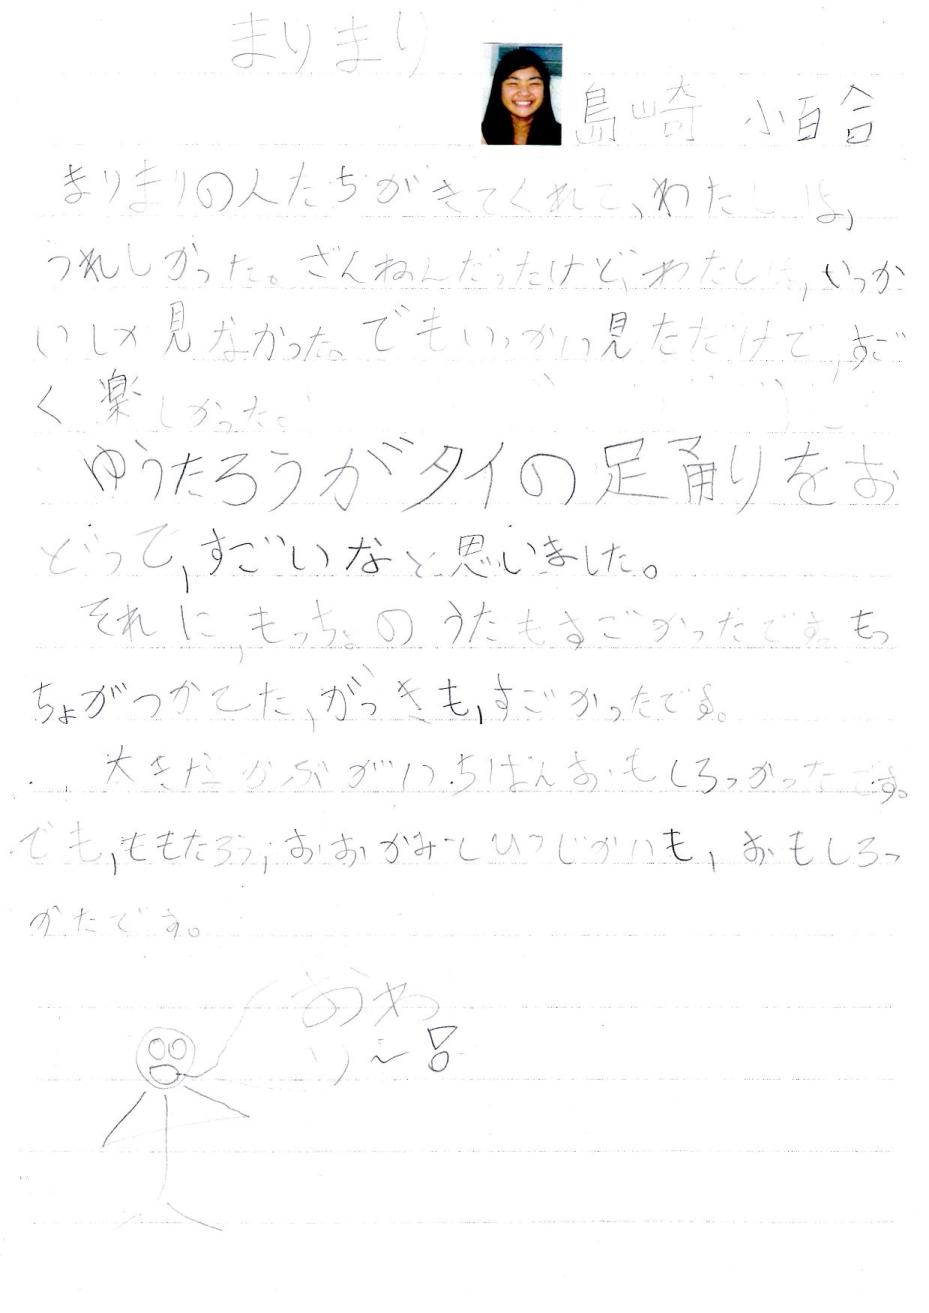 まりまり
島崎 小百合
まりまりの人たちがきてくれて、わたしは、
うれしかった。ざんねんだったけど、わたしは、いっか
いしか見なかった。でもいっかい見ただけで、すご
く楽しかった。
ゆうたろうがタイの踊りをお
どって、すごいなと思いました。
それに、もっちょのうたもすごかったです。もっ
ちょがつかてた、がっきも、すごかったです。
大きなかぶがいちばんおもしろっかったです。
でも、ももたろう、おおかみとひつじかいも、おもしろっ
かたです。
おわ
り〜!